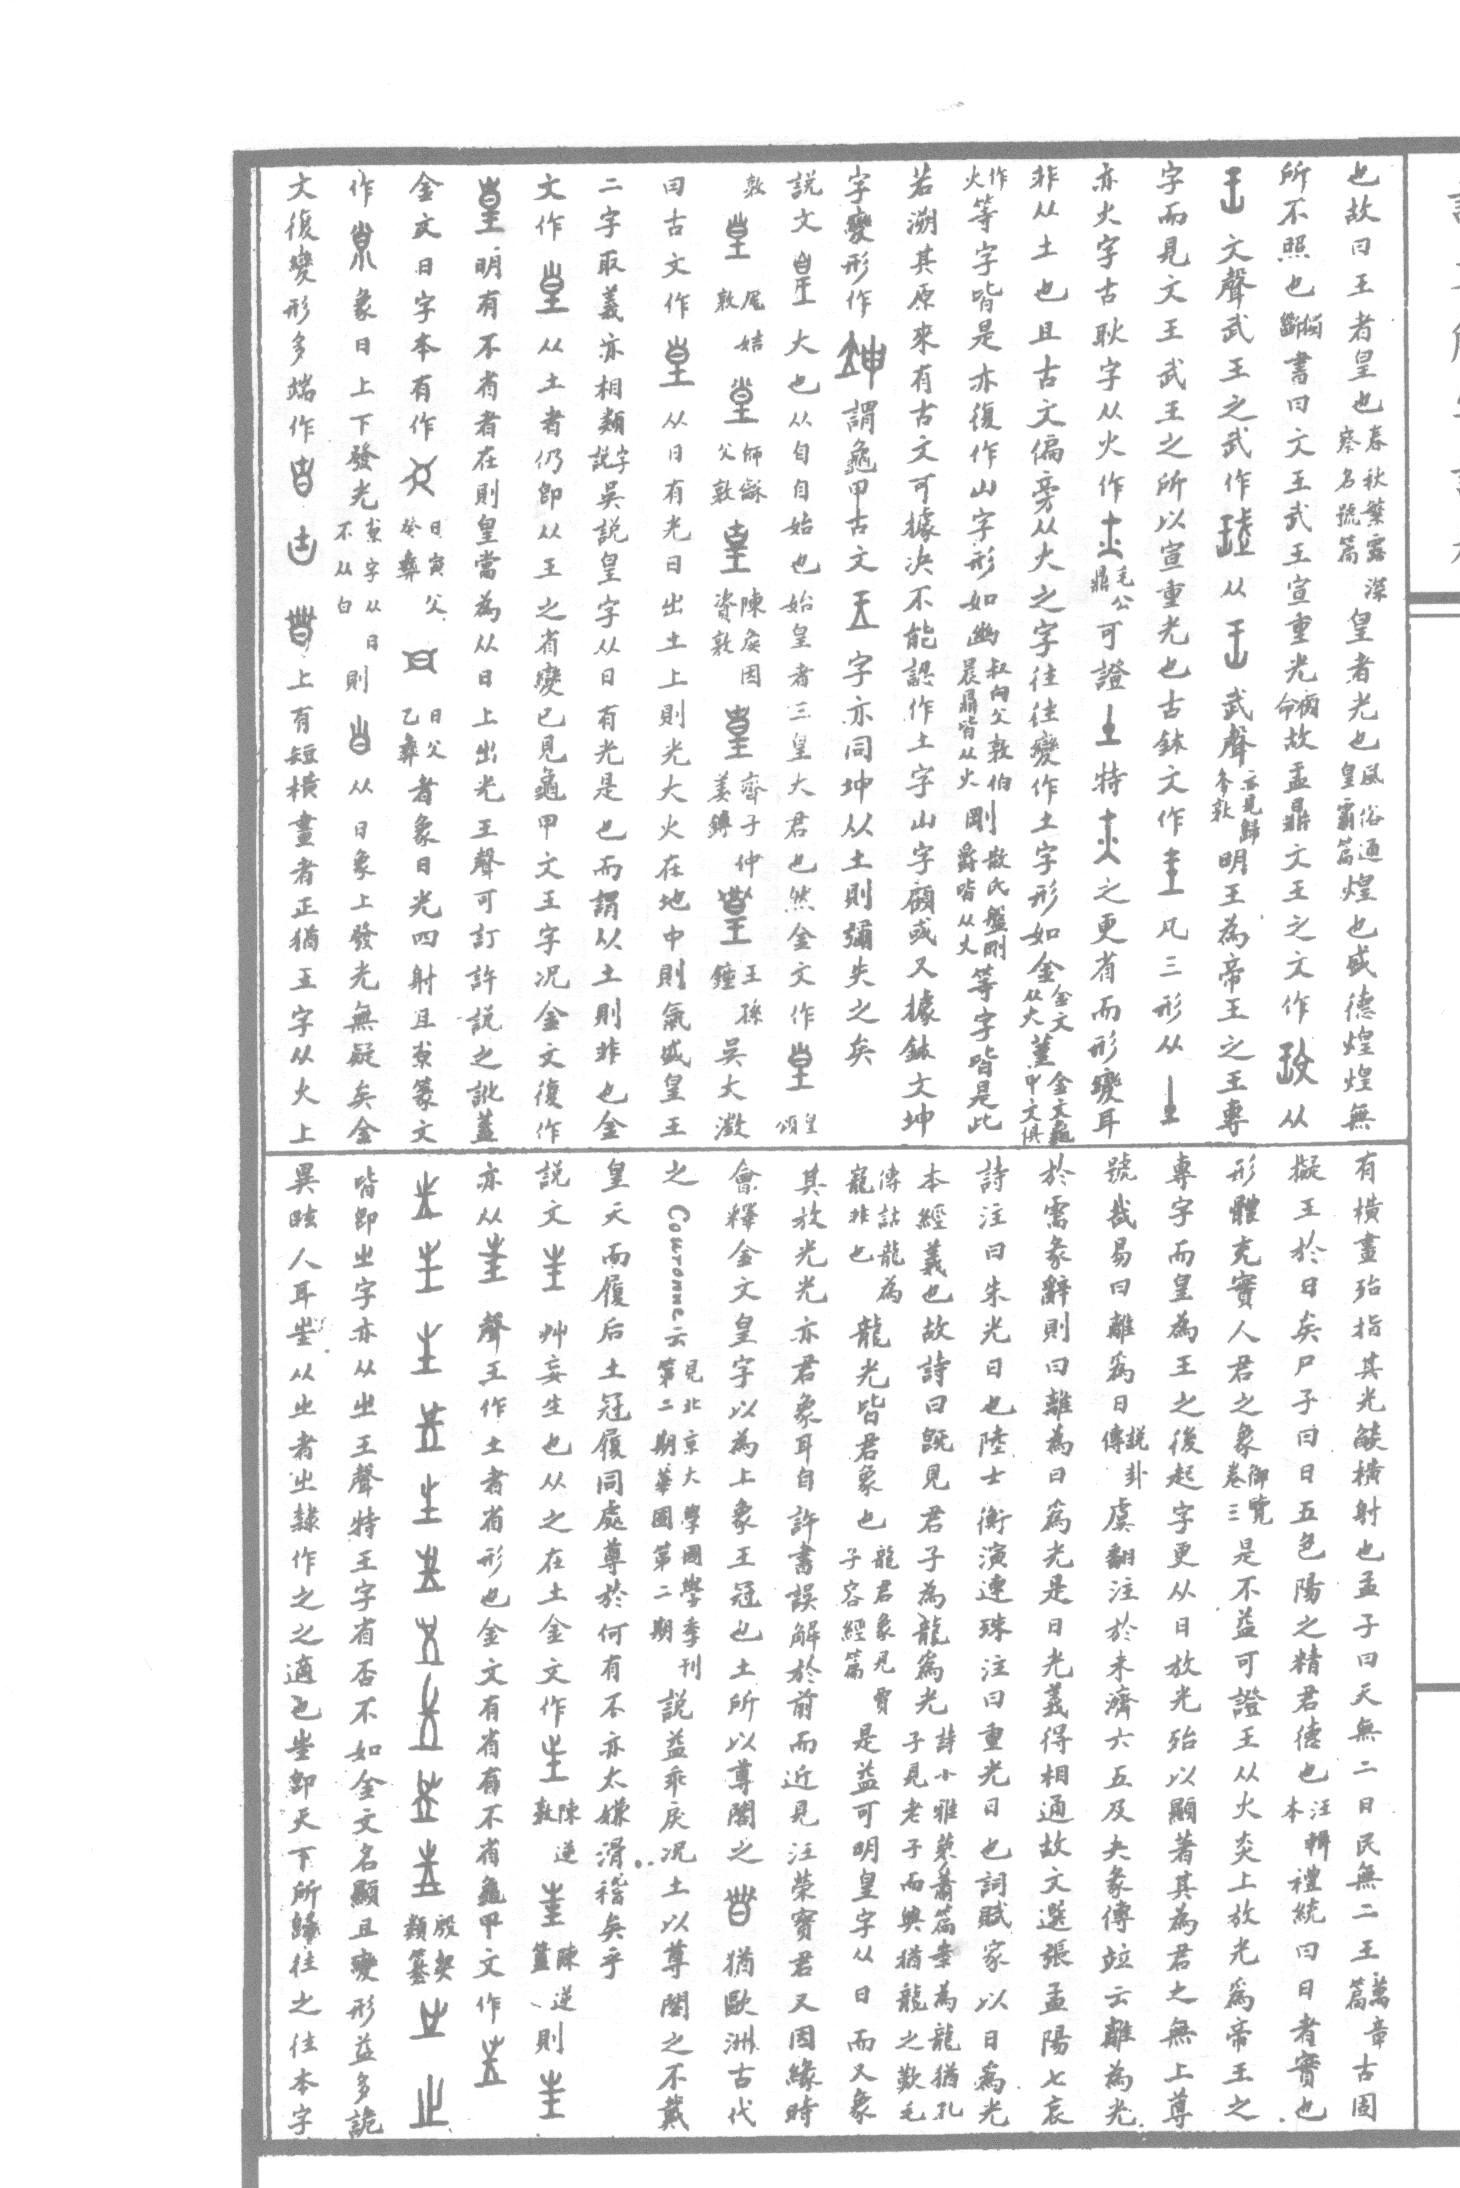 也故曰王者皇也春秋繁露深察名號篇皇者光也風俗通皇霸篇煌也盛德煌煌無
所不照也書曰文王武王宣重光顧命故盂鼎文王之文作玟从
文聲武王之武作珷从武聲亦見歸夆敦明王為帝王之王專
字而見文王武王之所以宣重光也古鉢文作凡三形从
亦火字古耿字从火作毛公鼎可證土特之更省而形變耳
非从土也且古文偏旁从火之字往往變作土字形如金金文从火堇金文龜甲文俱
作火等字皆是亦復作山字形如幽叔向父敦伯晨鼎皆从火剛散氏盤剛爵皆从火等字皆是此
若溯其原來有古文可據决不能認作土字山字顧或又據鉢文坤
字變形作謂龜甲古文字亦同坤以土則彌失之矣
說文皇大也从自自始也始皇者三皇大君也然金文作頌皇
敦尾姞敦師龢父敦陳侯因資敦齊子仲姜鎛王孫鐘吳大澂
曰古文作从日有光日出土上則光大火在地中則氣盛皇王
二字取義亦相類字說吳說皇字从日有光是也而謂以土則非也金
文作从土者仍即从王之省變已見龜甲文王字況金文復作
明有不省者在則皇當為从日上出光王聲可訂許說之訛蓋
金文日字本有作日寅父癸彝日父乙彝者象日光四射且寮篆文
作象日上下發光寮字从日不从白則从日象上發光無疑矣金
文復變形多端作上有短橫畫者正猶王字从火上
有橫畫殆指其光燄橫射也孟子曰天無二日民無二王萬章篇古固
擬王於日矣尸子曰日五色陽之精君德也汪輯本禮統曰日者實也
形體充實人君之象御覽卷三是不益可證王从火炎上放光為帝王之
專字而皇為王之後起字更从日放光殆以顯著其為君之無上尊
號哉易曰離為日說卦傳虞翻注於未濟六五及大象傳竝云離為光
於需彖辭則曰離為日為光是日光義得相通故文選張孟陽七哀
詩注曰朱光日也陸士衡演連珠注曰重光日也詞賦家以日為光
本經義也故詩曰既見君子為龍為光詩小雅蓼蕭篇案為龍猶孔子見老子而興猶龍之歎毛傳詁龍為寵非也
龍光皆君象也龍君象見賈子容經篇是益可明皇字从日而又象
其放光光亦君象耳自許書誤解於前而近見汪榮寶君又因緣時
會釋金文皇字以為上象王冠也土所以尊閣之猶歐洲古代
之Couronne云見北京大學國學季刊第二期華國第二期說益乖戾況土以尊閣之不戴
皇天而履后土冠履同處尊於何有不亦太嫌滑稽矣乎
說文艸妄生也从之在土金文作陳逆敦陳逆簠則
亦从聲王作土者省形也金文有省有不省龜甲文作
殷契類纂
皆即㞷字亦从㞷王聲特王字省否不如金文名顯且變形益多詭
異眩人耳㞷以㞢者㞢隸作之之適也㞷即天下所歸往之往本字